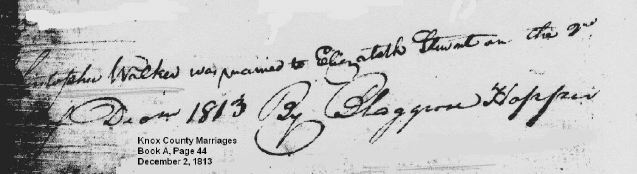 istopher Walker was married to Elizabeth Stewart on the 2nd
Decm 1813 By Blaggrove Hopper
Knox County Marriages
Book A, Page 44
December 2, 1813